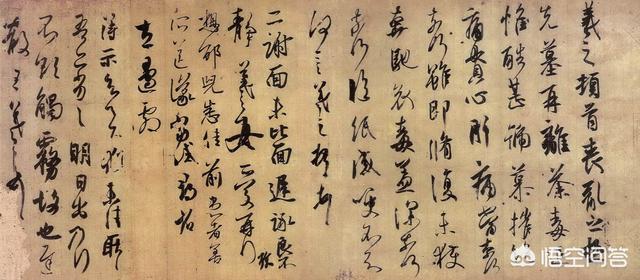 羲之頓首喪亂之極
先墓再離荼毒追
惟酷甚號慕摧絕
痛貫心肝痛當奈何
奈何雖即脩復未獲
奔馳哀毒益深奈何
奈何臨紙感哽不知
何言羲之頓首頓首
二謝面未比面遲詠良不
靜羲之女愛再拜
想邢兒悉佳前患者善
所送議當試尋省
左邊劇
得示知足下猶未佳耿耿
吾亦劣劣明日出乃行
不欲觸霧故也遲
散王羲之頓首
悟空问答